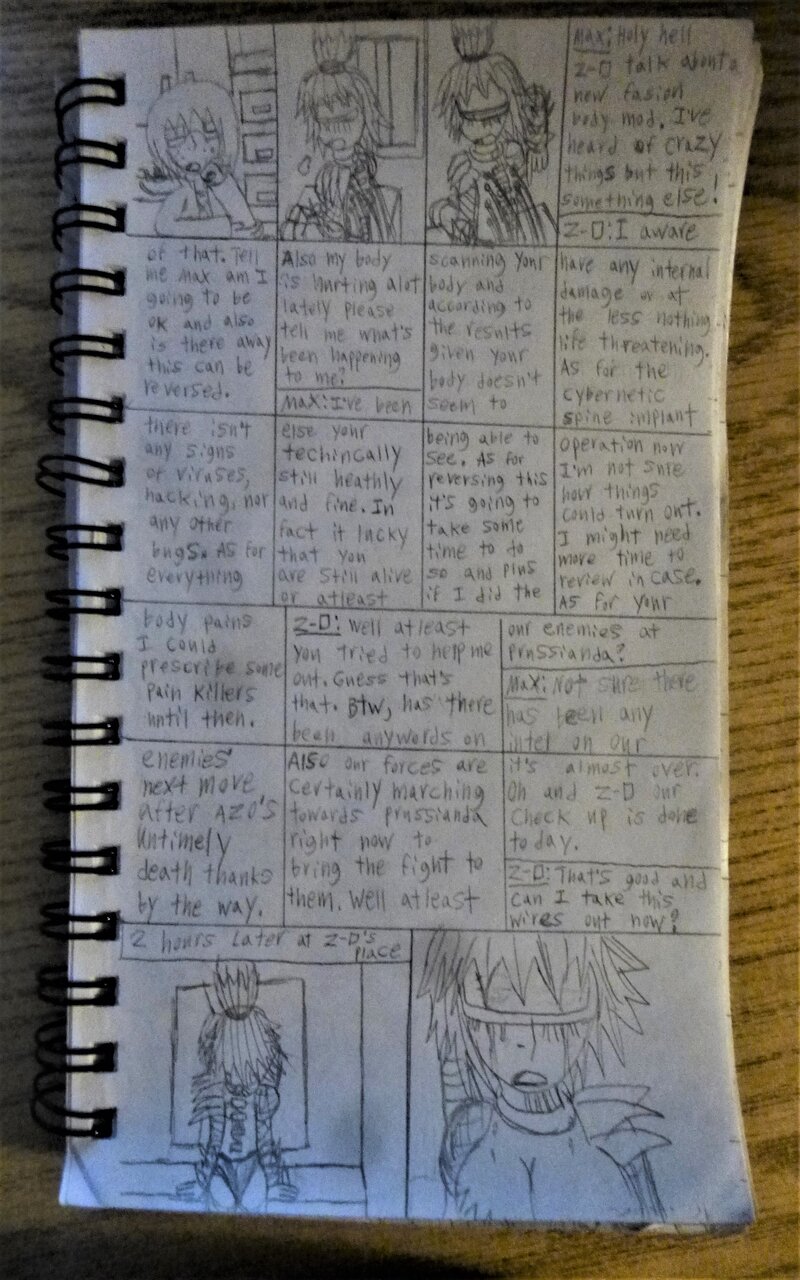 Max: Holy hell
Z-D talk about a
new fasion
body mod. I've
heard of crazy
things but this
something else!
Z-D: I aware
of that. Tell
me Max am I
going to be
ok and also
is there away
this can be
reversed.
Also my body
is hurting alot
lately please
tell me what's
been happening
to me?
Max: I've been
scanning your
body and
according to
the results
given your
body doesn't
seem to
have any internal
damage or at
the less nothing
life threatening.
As for the
cybernetic
spine implant
there isn't
any signs
of viruses,
hacking, nor
any other
bugs. As for
everything
else your
techincally
still heathly
and fine. In
fact it lucky
that you
are still alive
or atleast
being able to
see. As for
reversing this
it's going to
take some
time to do
so and plus
if I did the
operation now
I'm not sure
how things
could turn out.
I might need
more time to
review in case.
As for your
body pains
I could
prescribe some
pain killers
until then.
Z-D: Well atleast
you tried to help me
out. Guess that's
that. Btw, has there
been anywords on
our enemies at
Prussianda?
Max: Not sure there
has been any
intel on our
enemies'
next move
after AZO's
untimely
death thanks
by the way.
Also our forces are
certainly marching
towards prussianda
right now to
bring the fight to
them. Well atleast
it's almost over.
Oh and Z-D our
check up is done
today.
Z-D: That's good and
can I take this
wires out now?
2 hours later at Z-D's
place